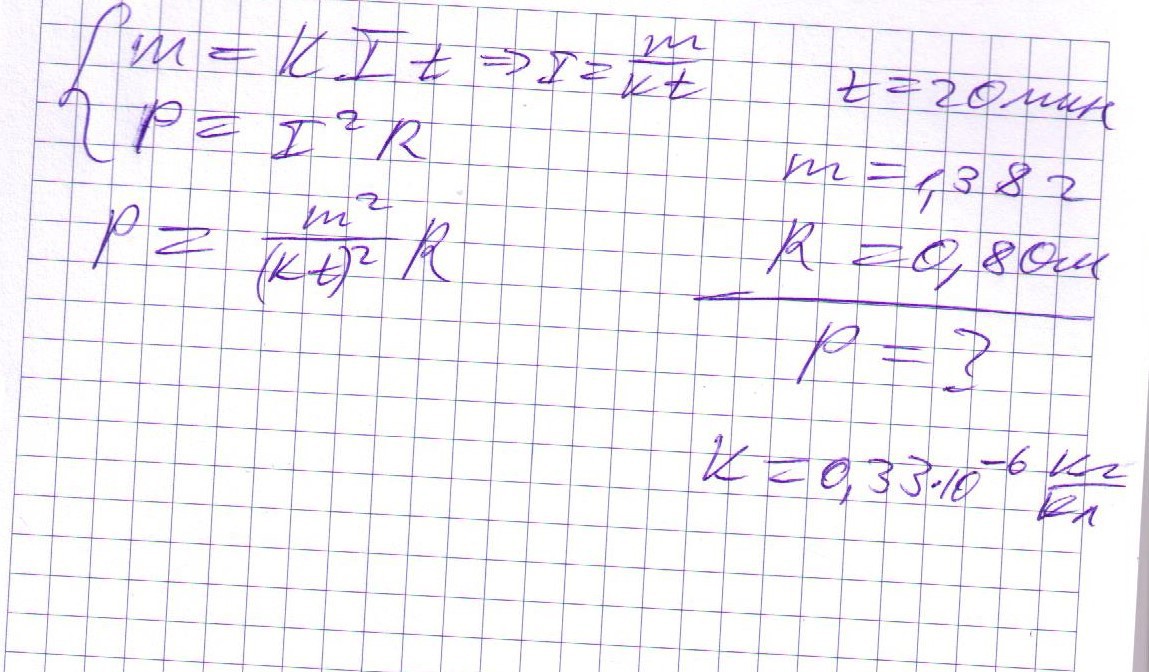 m = K I t => I = m/kt
P = I² R
P = m²/(kt)² R
t = 20 мин
m = 1,38 г
R = 0,8 Ом
P = ?
K = 0,33·10⁻⁶ кг/Кл